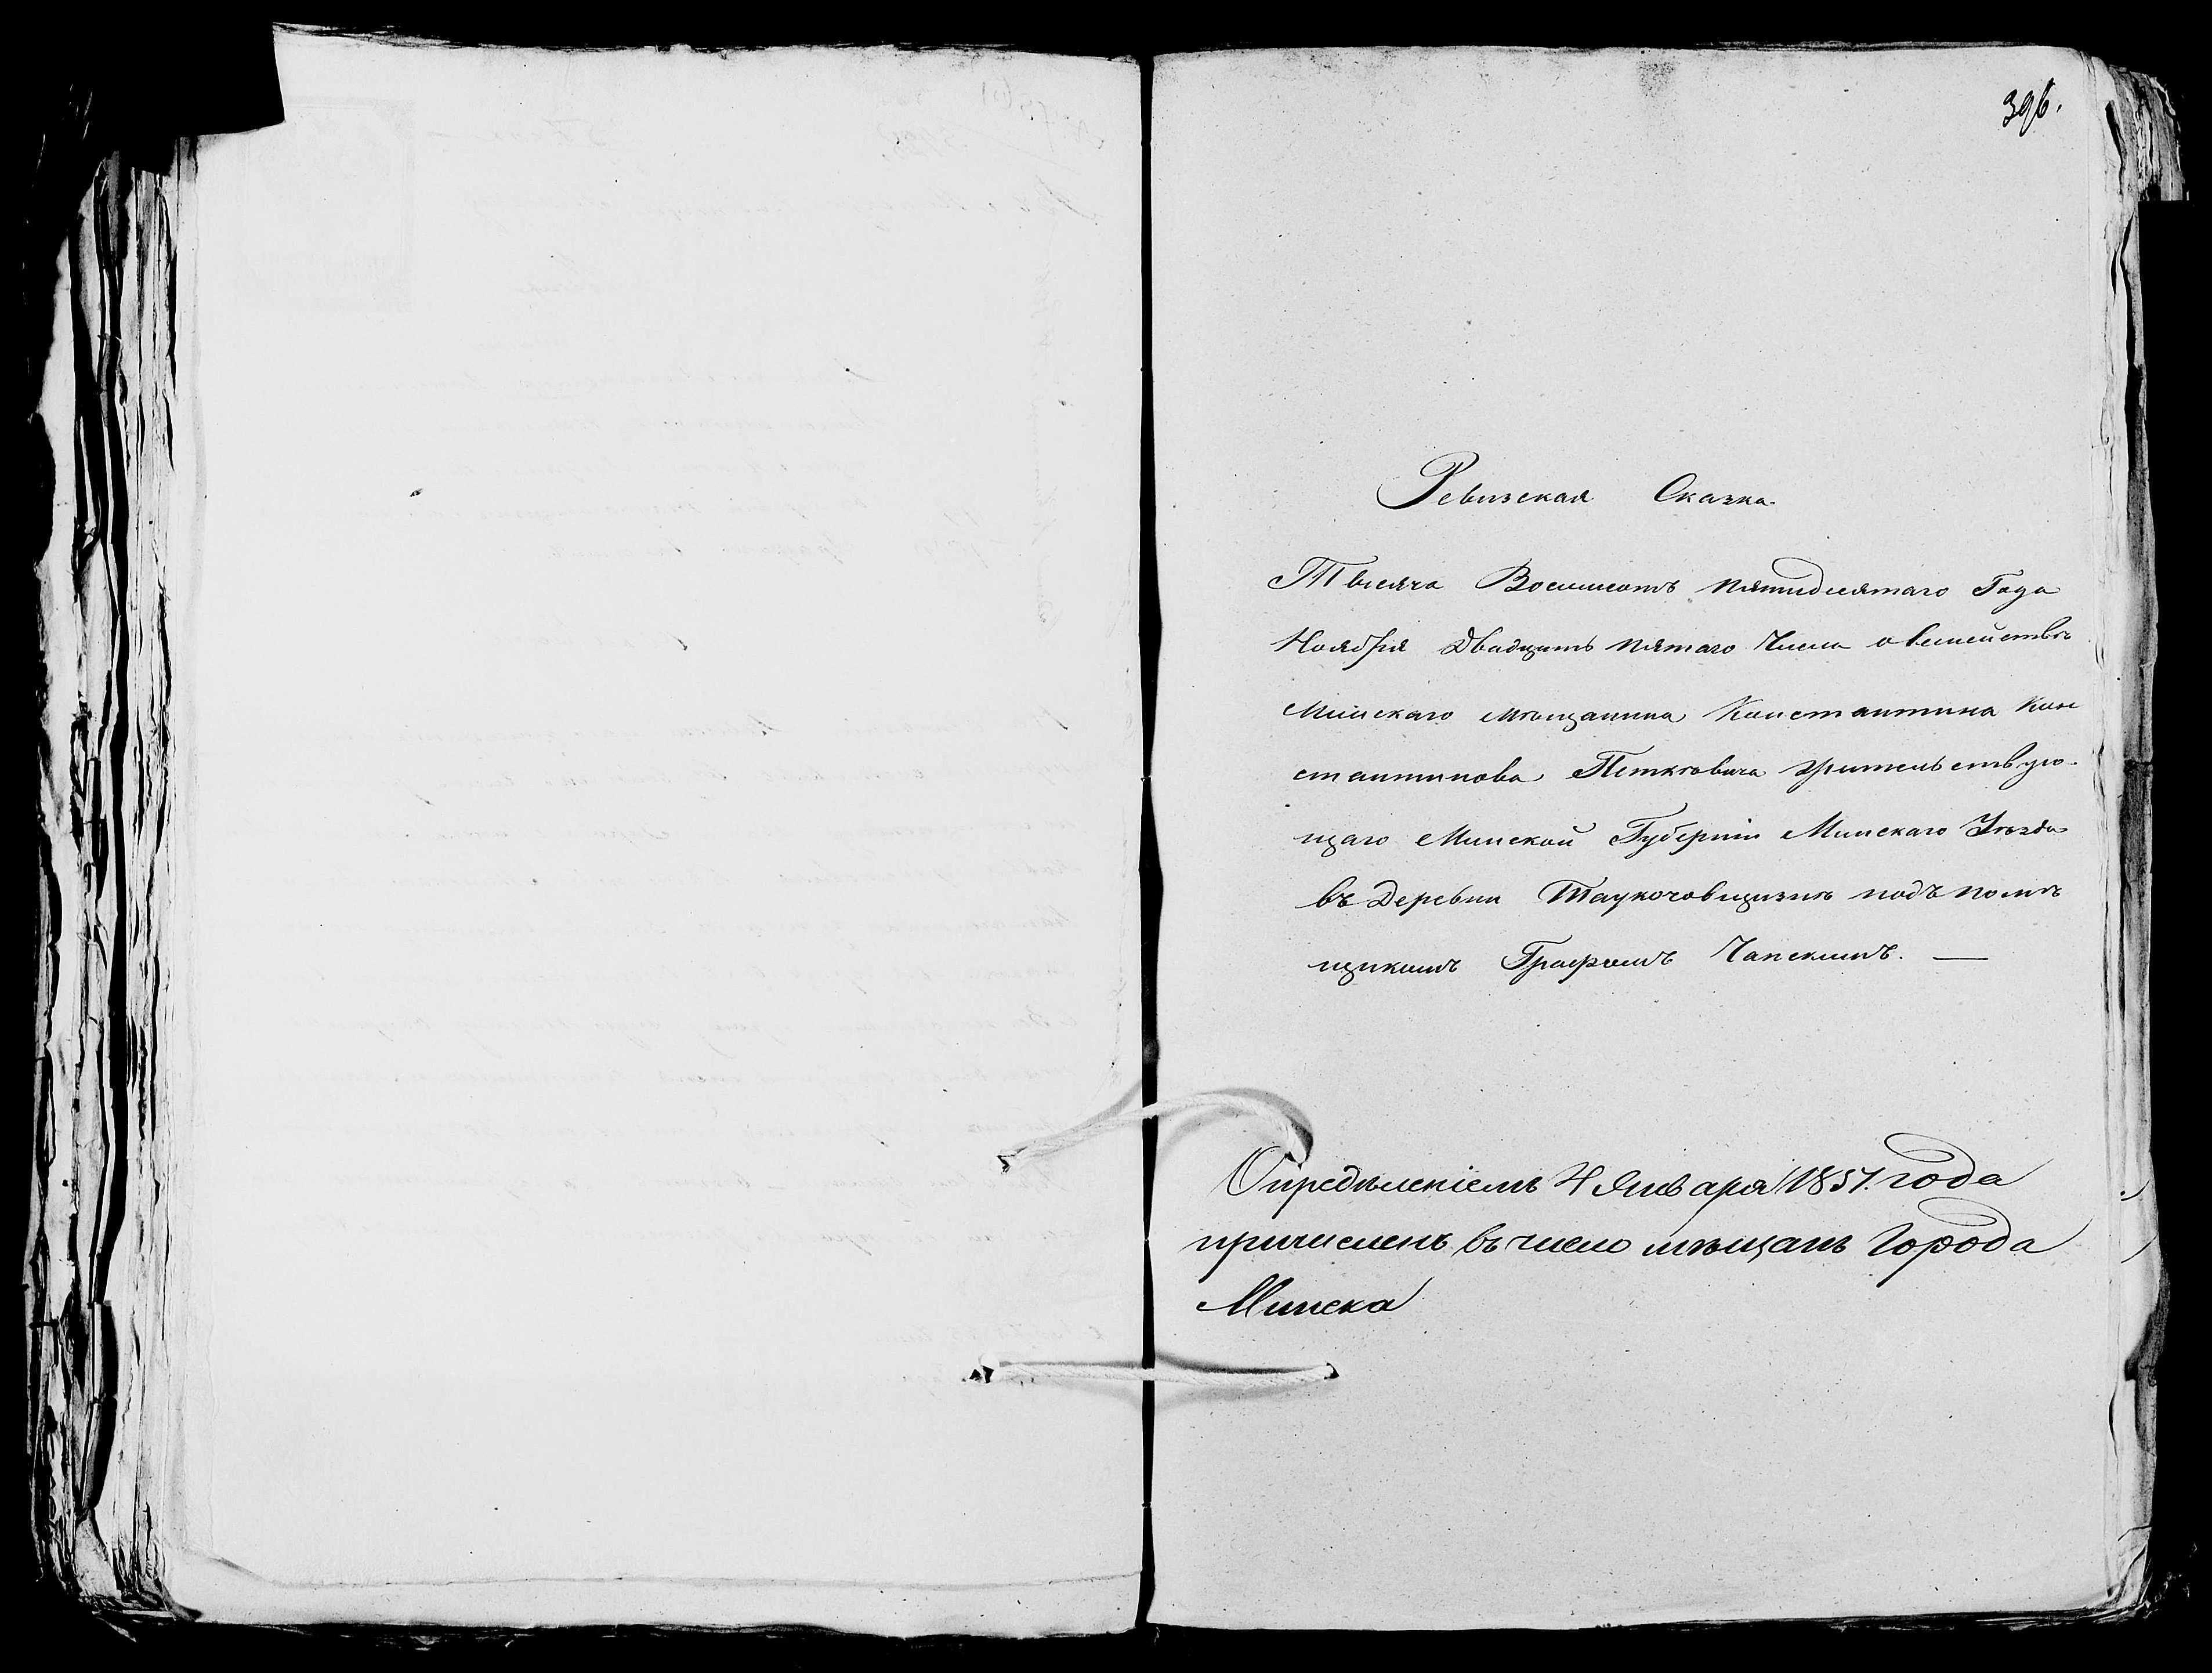 396.
Ревизская Сказка.
Тысяча Восемьсотъ пятидесятаго Года
Ноября Двадцать пятаго Числа о Семействѣ
Минскаго мѣщанина Константина Кон
стантинова Петковича жительствую-
щаго Минской Губерніи Минскаго Уѣзда
въ Деревни подъ помѣ
щикомъ Графомъ Чапскимъ. —
Опредѣленіемъ 4 Января 1851. года
причисленъ въ число мѣщанъ Города
Минска